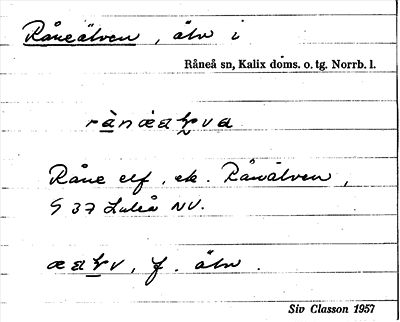 Råneälven, älv i
Råneå sn, Kalix doms. o. tg. Norrb. l.
Råne elf, ek. Råneälven,
§ 37 Luleå NV.
f. älv.
Siv Classon 1957